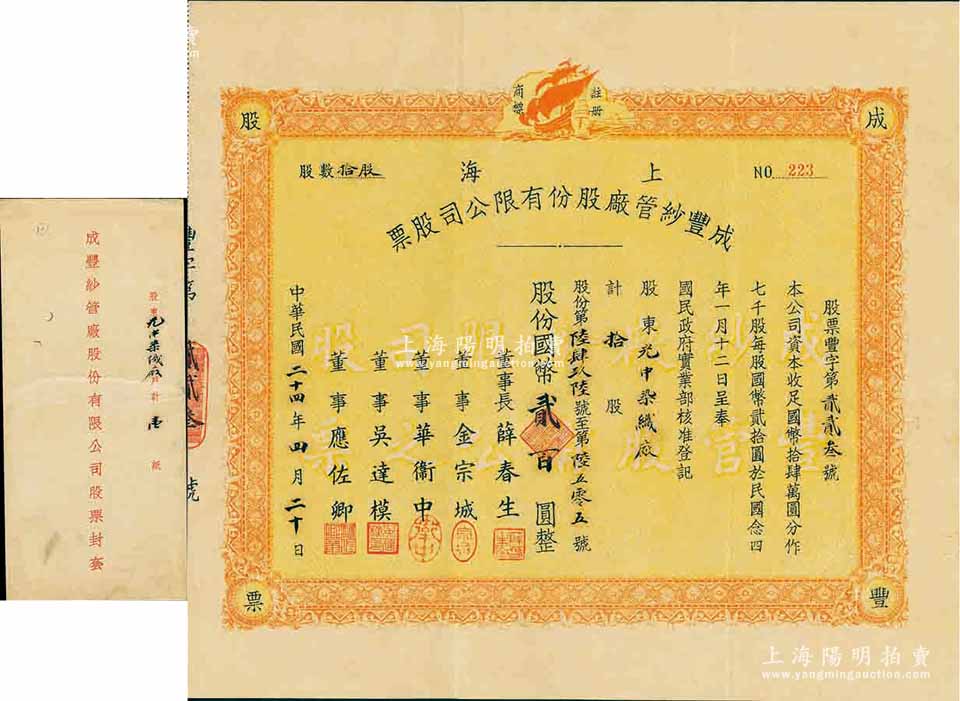 註冊
商標
成
豐
股
票
NO 223
上海
股數拾股
成豐紗管廠股份有限公司股票
股票豐字第貳貳叁號
本公司資本收足國幣拾肆萬圓分作
七千股每股國幣貳拾圓於民國念四
年一月十二日呈奉
國民政府實業部核准登記
股東光中染織廠
計拾股
股份第陸肆玖陸號至第陸五零五號
股份國幣貳百圓整
董事長薛春生
董事金宗城
董事華衞中
董事吳達模
董事應佐卿
中華民國二十四年四月二十日
貳貳叁
號
股東光中染織廠
計壹紙
成豐紗管廠股份有限公司股票封套
上海陽明拍賣
www.yangmingauction.com